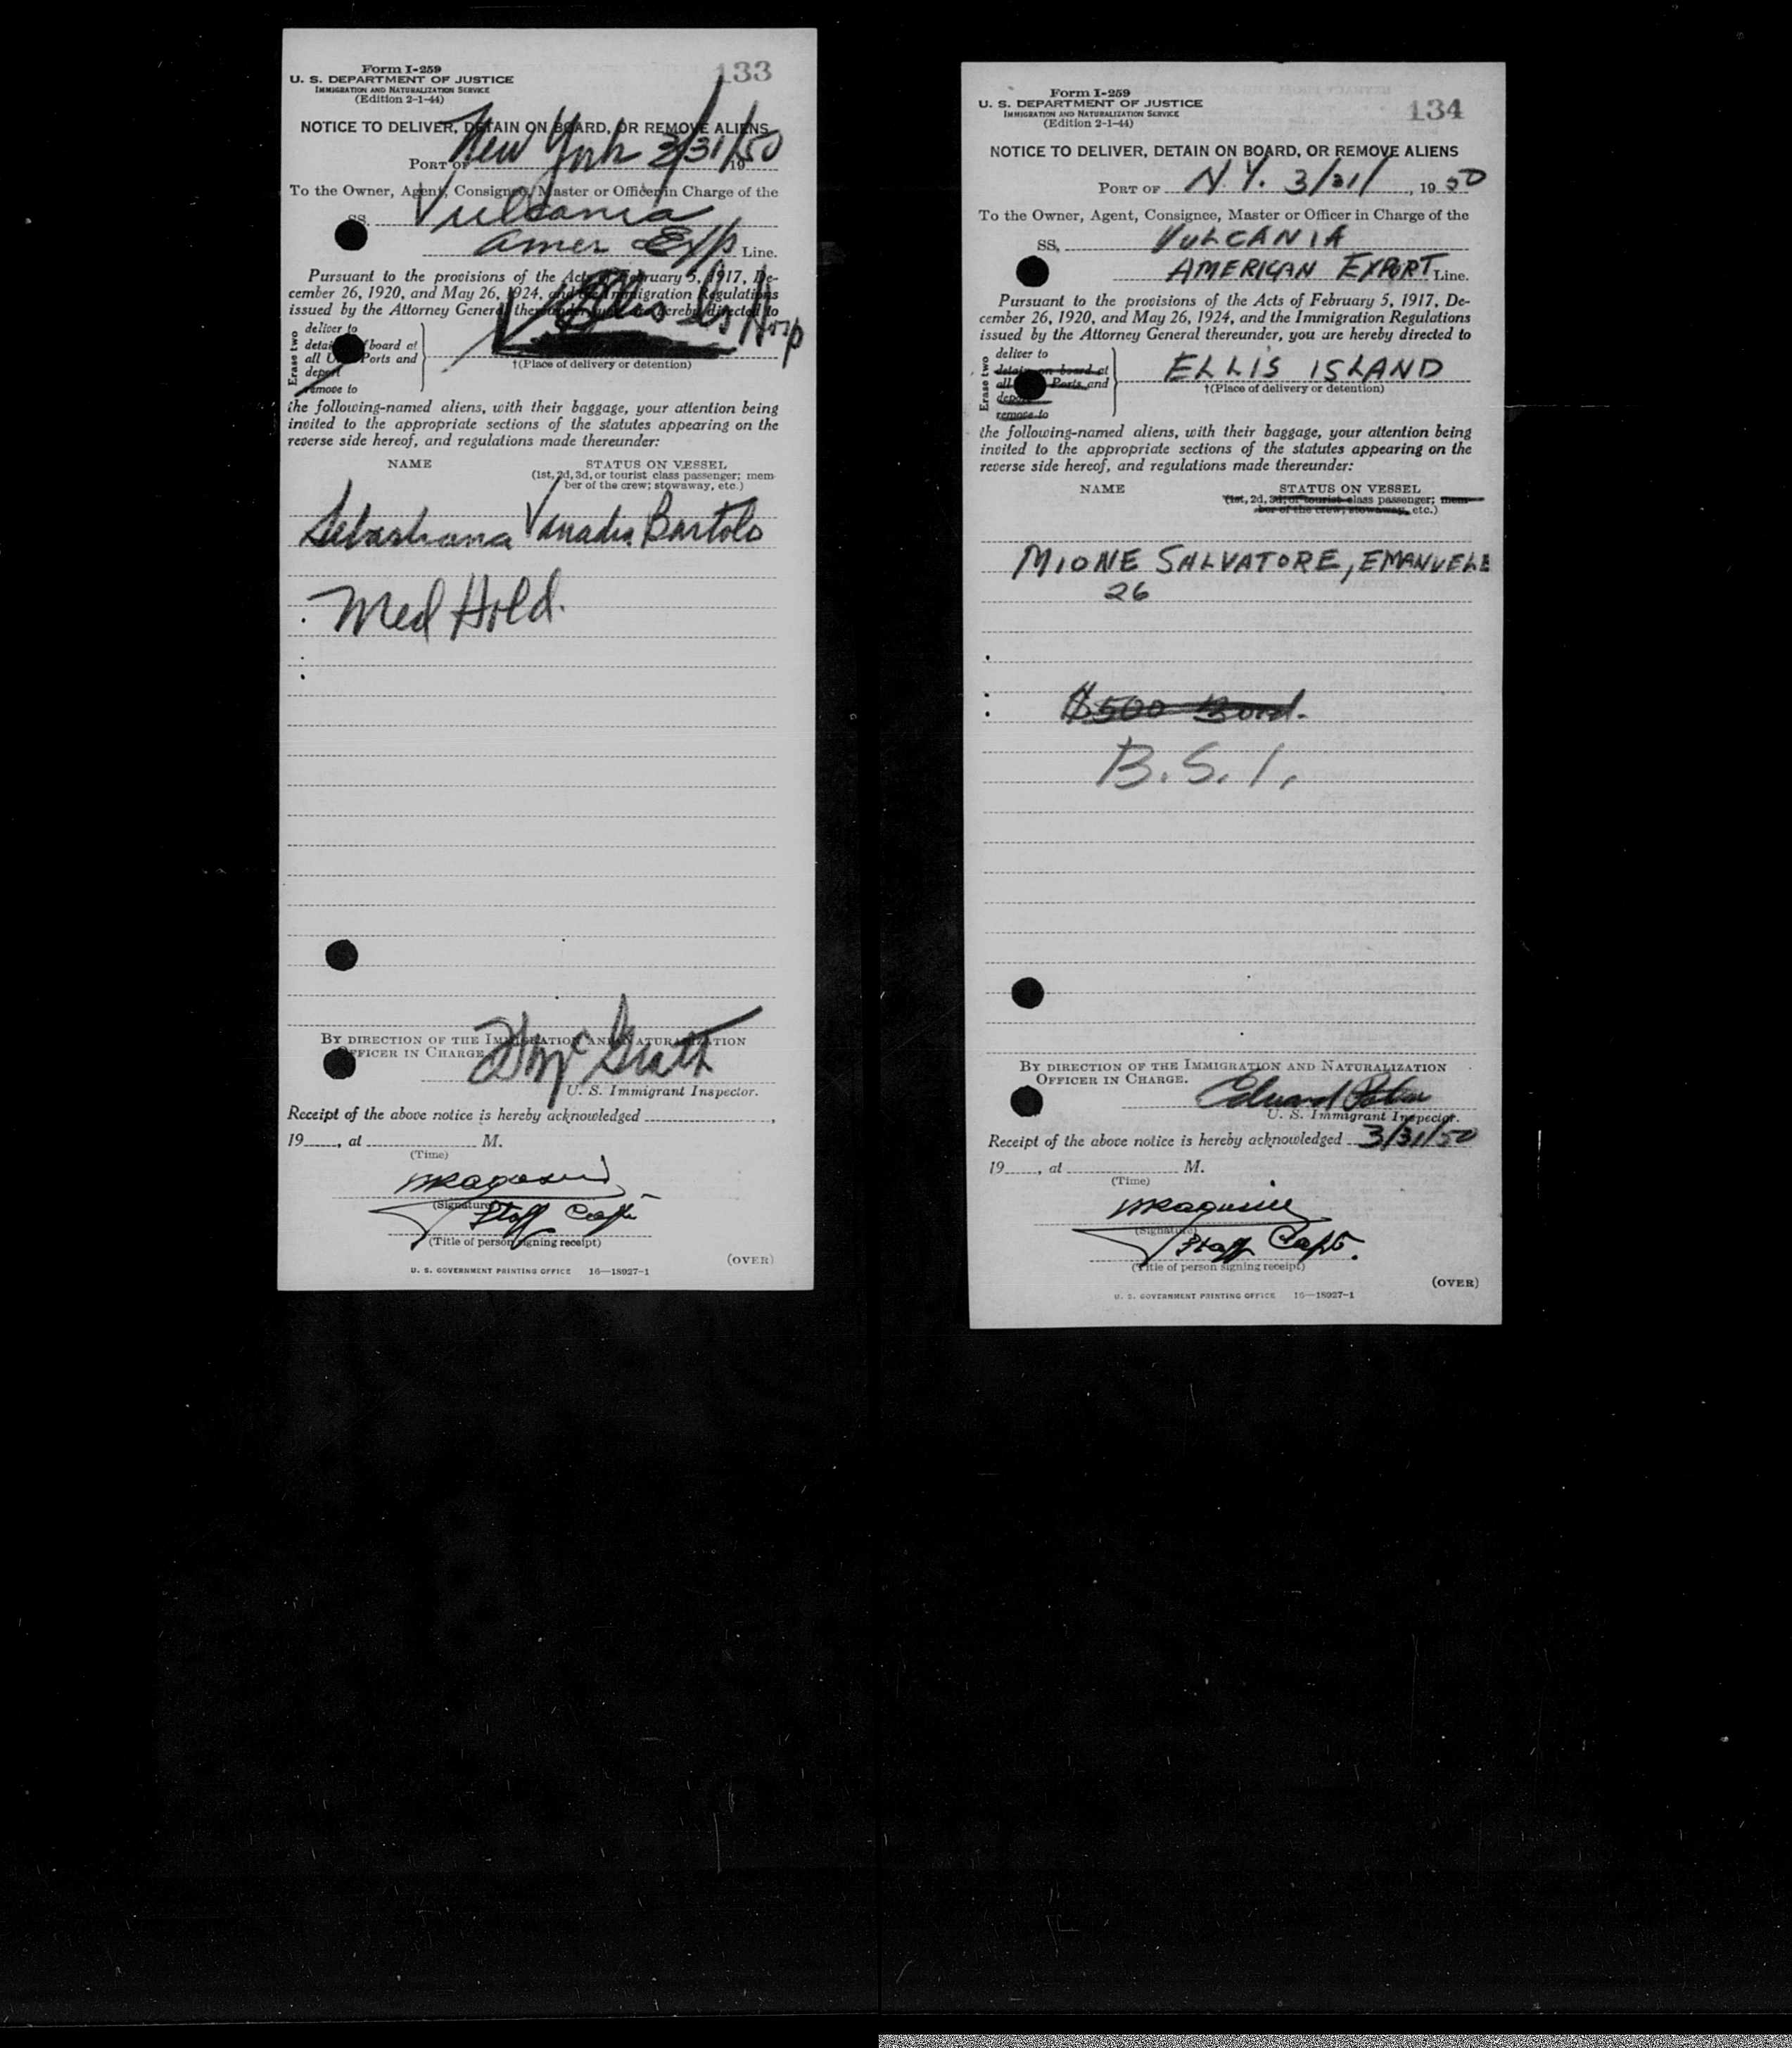 133
Form I-259
U. S. DEPARTMENT OF JUSTICE
IMMIGRATION AND NATURALIZATION SERVICE
(Edition 2-1-44)
NOTICE TO DELIVER, DETAIN ON BOARD, OR REMOVE ALIENS
PORT OF New York 3/31/50 19
To the Owner, Agent, Consignee, Master or Officer in Charge of the
SS. Vulcania
Amer Exp Line.
Pursuant to the provisions of the Acts of February 5, 1917, De-
cember 26, 1920, and May 26, 1924, and the Immigration Regulations
issued by the Attorney General thereunder, you are hereby directed to
Erase two
deliver to
detain on board at
all U.S. Ports and
deport
remove to
Ellis Is Hosp
†(Place of delivery or detention)
the following-named aliens, with their baggage, your attention being
invited to the appropriate sections of the statutes appearing on the
reverse side hereof, and regulations made thereunder:
NAME STATUS ON VESSEL
(1st, 2d, 3d, or tourist class passenger; mem-
ber of the crew; stowaway, etc.)
Sebastiana Bartolo
Med Hold.
BY DIRECTION OF THE IMMIGRATION AND NATURALIZATION
OFFICER IN CHARGE.
McGrath
U. S. Immigrant Inspector.
Receipt of the above notice is hereby acknowledged ,
19 , at M.
(Time)
(Signature)
Staff Capt
(Title of person signing receipt)
(OVER)
U. S. GOVERNMENT PRINTING OFFICE 16—18927-1
134
Form I-259
U. S. DEPARTMENT OF JUSTICE
IMMIGRATION AND NATURALIZATION SERVICE
(Edition 2-1-44)
NOTICE TO DELIVER, DETAIN ON BOARD, OR REMOVE ALIENS
PORT OF N.Y. 3/31/ , 19 50
To the Owner, Agent, Consignee, Master or Officer in Charge of the
SS. VULCANIA
AMERICAN EXPORT Line.
Pursuant to the provisions of the Acts of February 5, 1917, De-
cember 26, 1920, and May 26, 1924, and the Immigration Regulations
issued by the Attorney General thereunder, you are hereby directed to
Erase two
deliver to
detain on board at
all U.S. Ports and
deport
remove to
ELLIS ISLAND
†(Place of delivery or detention)
the following-named aliens, with their baggage, your attention being
invited to the appropriate sections of the statutes appearing on the
reverse side hereof, and regulations made thereunder:
NAME STATUS ON VESSEL
(1st, 2d, 3d, or tourist class passenger; mem-
ber of the crew; stowaway, etc.)
MIONE SALVATORE, EMANUELE
26
$500 Bond.
B.S.I.
BY DIRECTION OF THE IMMIGRATION AND NATURALIZATION
OFFICER IN CHARGE.
Edward
U. S. Immigrant Inspector.
Receipt of the above notice is hereby acknowledged 3/31/50
19 , at M.
(Time)
(Signature)
Staff Capt.
(Title of person signing receipt)
(OVER)
U. S. GOVERNMENT PRINTING OFFICE 16—18927-1